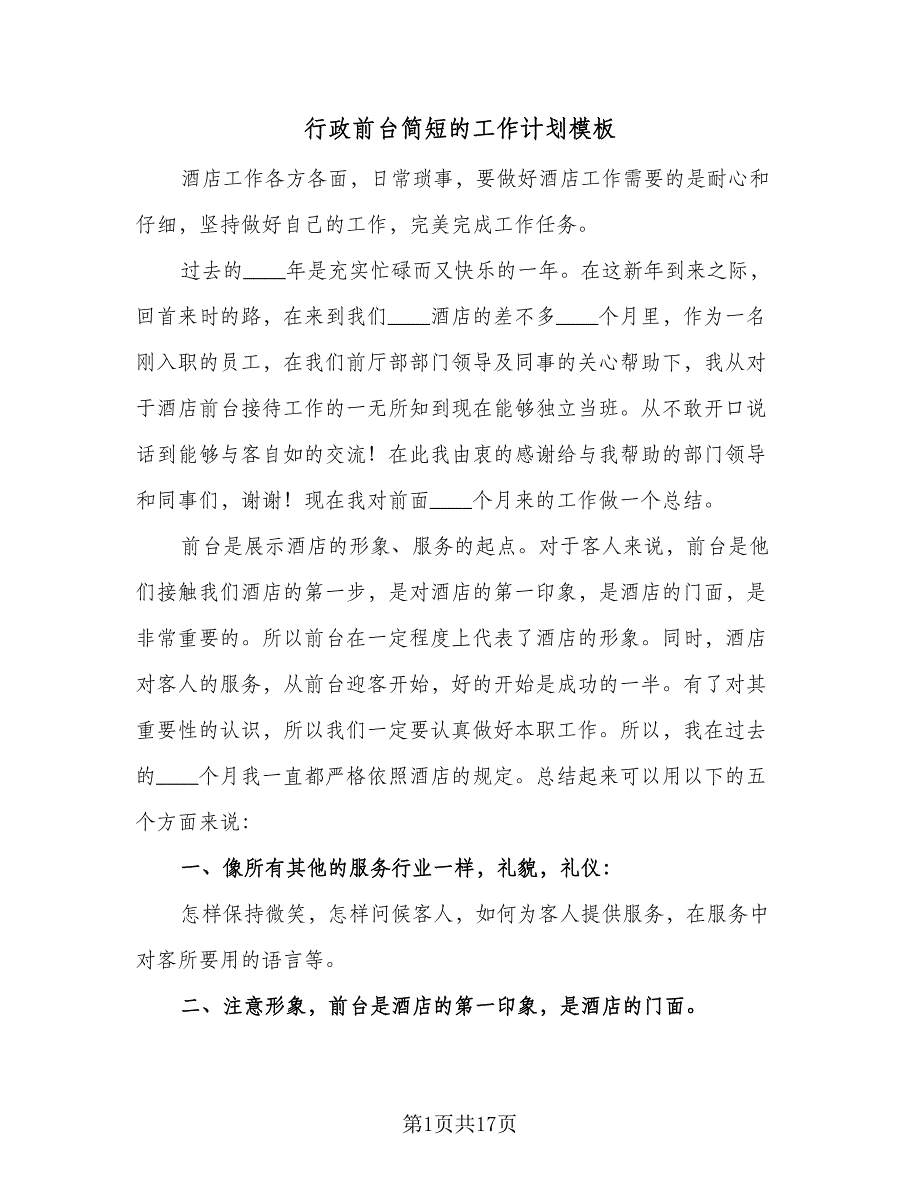 行政前台简短的工作计划模板
酒店工作各方各面，日常琐事，要做好酒店工作需要的是耐心和
仔细，坚持做好自己的工作，完美完成工作任务。
过去的____年是充实忙碌而又快乐的一年。在这新年到来之际，
回首来时的路，在来到我们____酒店的差不多____个月里，作为一名
刚入职的员工，在我们前厅部部门领导及同事的关心帮助下，我从对
于酒店前台接待工作的一无所知到现在能够独立当班。从不敢开口说
话到能够与客自如的交流！在此我由衷的感谢给与我帮助的部门领导
和同事们，谢谢！现在我对前面____个月来的工作做一个总结。
前台是展示酒店的形象、服务的起点。对于客人来说，前台是他
们接触我们酒店的第一步，是对酒店的第一印象，是酒店的门面，是
非常重要的。所以前台在一定程度上代表了酒店的形象。同时，酒店
对客人的服务，从前台迎客开始，好的开始是成功的一半。有了对其
重要性的认识，所以我们一定要认真做好本职工作。所以，我在过去
的____个月我一直都严格依照酒店的规定。总结起来可以用以下的五
个方面来说：
一、像所有其他的服务行业一样，礼貌，礼仪：
怎样保持微笑，怎样问候客人，如何为客人提供服务，在服务中
对客所要用的语言等。
二、注意形象，前台是酒店的第一印象，是酒店的门面。
第1页共17页